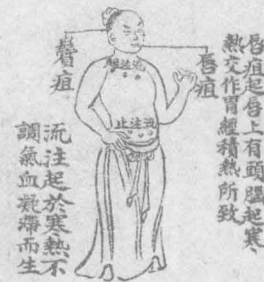 唇疽起唇上有頭腦起寒
熱交作胃經積熱所致
唇疽
流注
流注止
鬢疽
流注起於寒熱不
調氣血凝滯而生